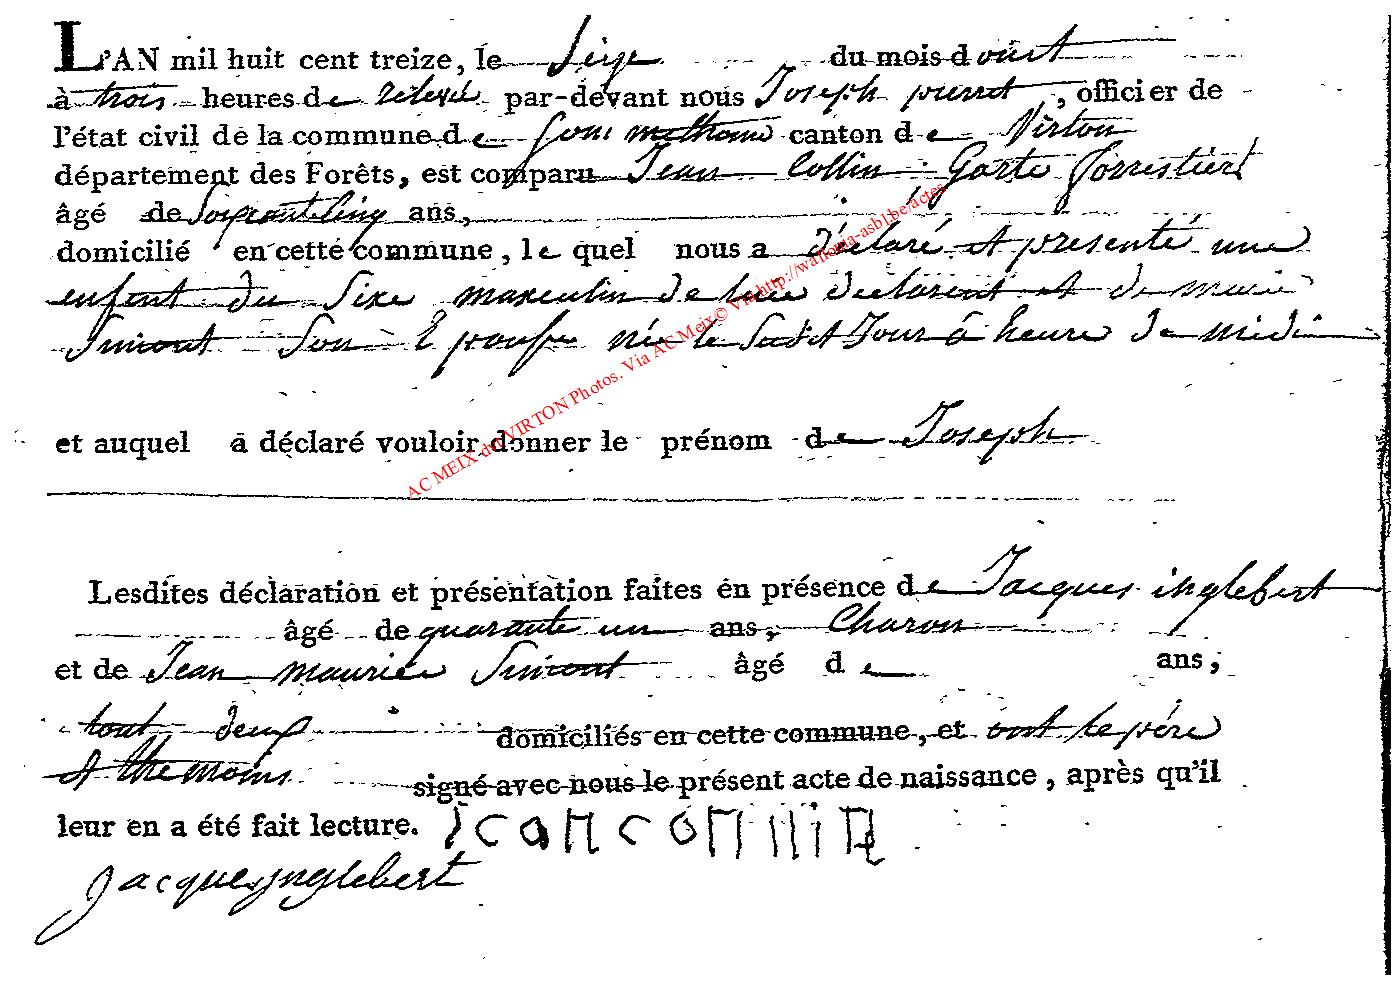 L'AN mil huit cent treize, le Seize du mois d'oust
à trois heures de relevé par-devant nous Joseph pierret, officier de
l'état civil de la commune de Gommethouse canton de Virton
département des Forêts, est comparu Jean Collin Garte forrestiers
âgé de Soixante Cinq ans,
domicilié en cette commune, le quel nous a déclaré et présenté une
enfent du sixe masculin de luie declarent et de marie
Simont Son Epouse née le Sudit Jour à heure de midi
et auquel a déclaré vouloir donner le prénom de Joseph
Lesdites déclaration et présentation faites en présence de Jacques inglebert
âgé de quarante un ans, Charon
et de Jean maurice Simont âgé de ans,
tout deux domiciliés en cette commune, et ont le père
et themoins signé avec nous le présent acte de naissance, après qu'il
leur en a été fait lecture. Jean collin
Jacques Inglebert
AC MEIX dvt VIRTON Photos. Via AC Meix© Via http://wallonia-asbl.be/actes